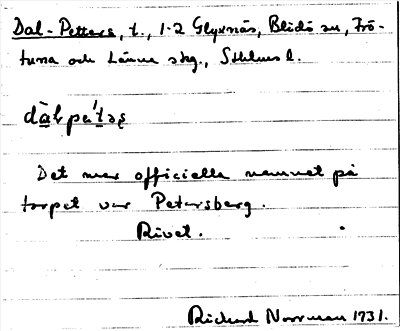 Dal-Petters, t., 1-2 Glyxnäs, Blidö sn, Frö-
tuna och Länna skg., Sthlms l.
dàlpe'təs
Det mer officiella namnet på
torpet var Petersberg.
Rivet.
Richard Norrman 1931.